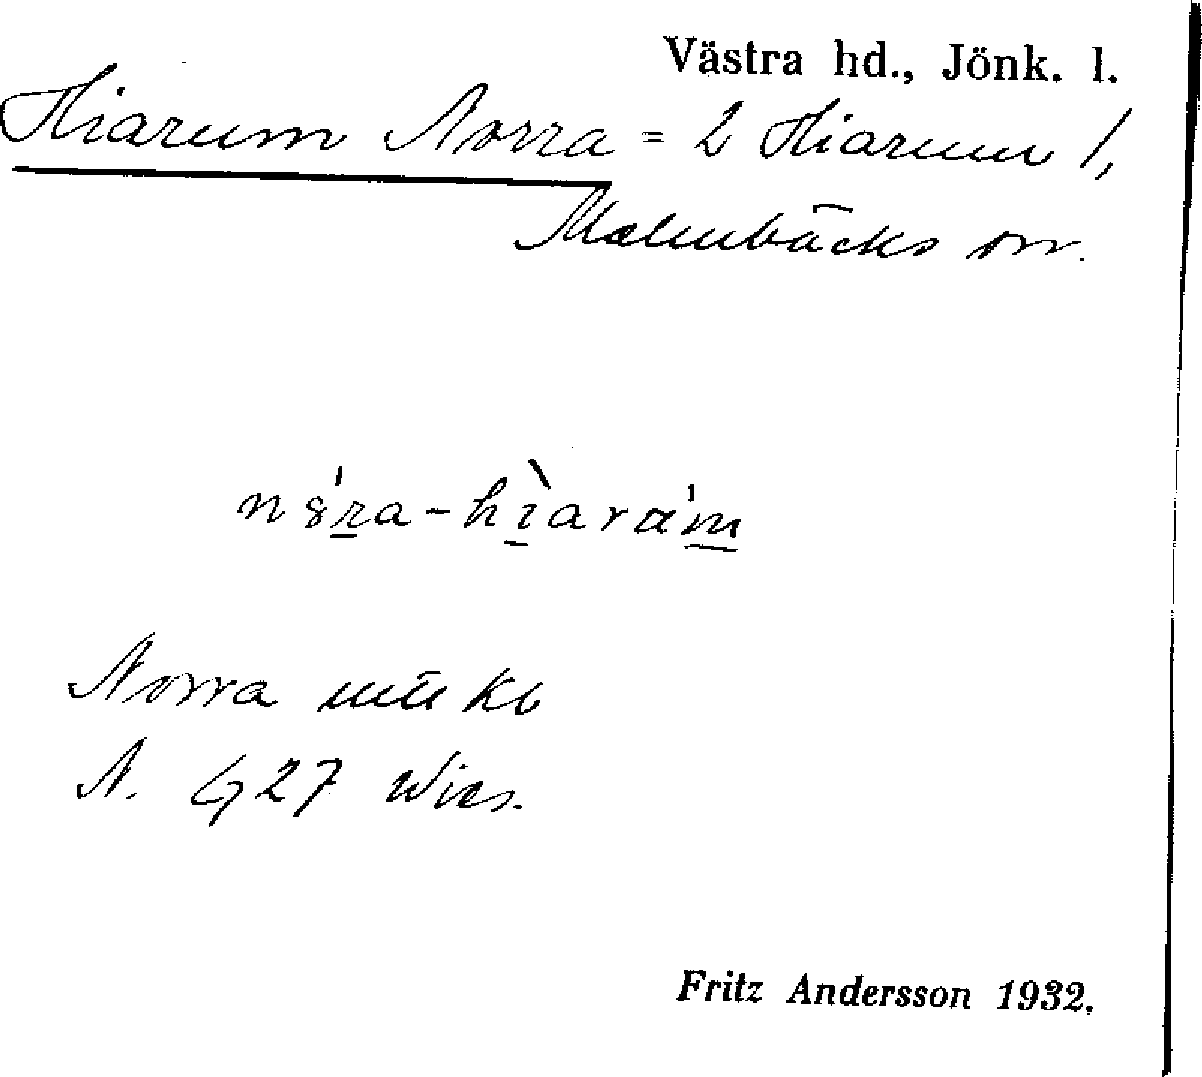 Västra hd., Jönk. l.
Hiarum Norra = 2 Hiarum 1,
Malmbäcks sn.
n8́ra-hìarám
Norra
N. 427
Fritz Andersson 1932.